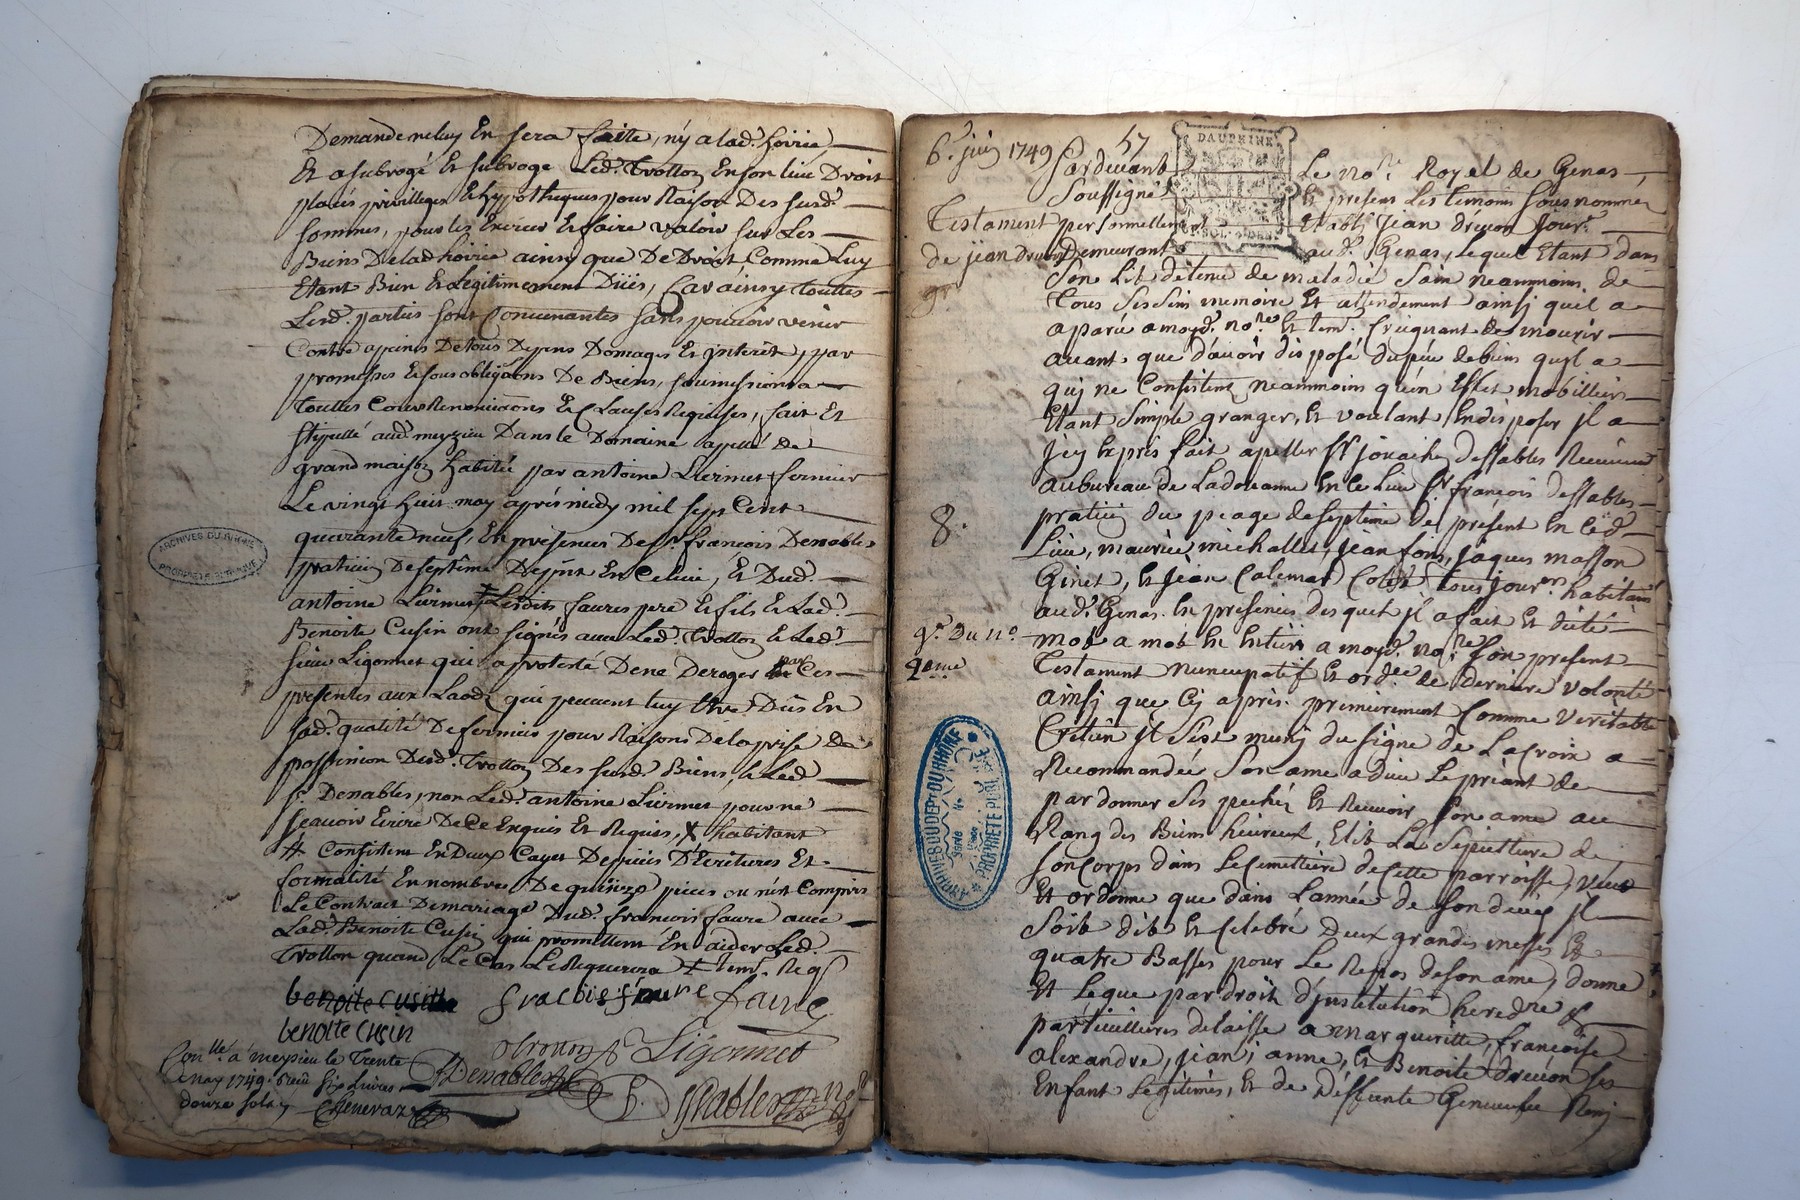 Demandeneluy En sera faitte, n'y a lad.e hoirie
Et a subrogé Et subroge Led.t Trollon En son lieu Droit
places privilleges Ethypotheques pour Raison Des susd.
sommes, pour les Exiger Et faire valoir sur Les
Biens De lad hoirie ainsy que De Droit, Comme Luy
Etant Bien Et Legitimement Düës, Car ainsy touttes
Lesd. parties sont Convenantes sans pouvoir venir
Contre a peines De tous Depens Domages Et interêts, par
promesses Et sous obligâons De Biens, soumissions a
touttes Cours Renonciâons Et Clauses Requises, fait Et
stipullé aud.t meyzieu Dans le Domaine appellé de
grand maison habitée par antoine Liermet fermier
Le vingt huit may après midy mil sept Cent
quarante neuf, En présences De s.r francois Desables
praticien De septême De pñt En Ce lieu, Et Dud.
antoine Liermet ‡ Lesdits faures pere Et fils Et Lad.
Benoite Cusin ont signés avec Led. Trollon Et Led.
sieur Ligonnet qui a protesté De ne Deroger par Ces
presentes aux Laods qui peuvent luy Etre Düs En
sad. qualité De fermier pour Raisons De la prise de
possession Dud. Trollon Des susd. Biens, Et Led
s.r Desables, non Led. antoine Liermet pour ne
sçavoir Ecrire De Ce Enquis Et Requis, ‡ habitant
# Consistent En Deux Cayer De pieces D'Ecritures Et
formalité En nombre De quinze pieces ou n'est Compris
Le Contrat De mariage Dud. francois faure avec
Lad. Benoite Cusin qui promettent En aider Led.
Trollon quand Le Cas Le Requerera
benoite cusin
benoite cusin
francois faure faure
Ligonnet
Desables
Con.llé a meysieu le Trente
may 1749. Reçu six Livres
douze sols
Chenevaz
ARCHIVES DU RHONE
PROPRIETE PUBLIQUE
6.e juin 1749
57
DAUPHINE
Testament
de jean
8.
Pardevant Le no.re Royal de Genas
soussigné Et presens Les temoins sous nommés
personnellement Etably Jean Jour.r
Demeurant aud.t Genas, Lequel Etant dans
son Lit detenu de maladie sain neammoins de
tous ses sens memoire Et attendement ainsi quil a
aparu a moyd. no.re Et tem. Craignant de mourir
avant que d'avoir disposé du peu de biens quyl a
quj ne Consistent neammoins qu'en Effets mobilliers
Etant simple granger, Et voulant En disposer jl a
Jcy Exprès fait apeller s.r joachin dessables Receveur
au bureau de La douanne En Ce Lieu s.r françois dessables
praticien du peage de septeme de present En Ced.
Lieu, maurice michallet, jean foin, jaques masson
Ginet, Et jean Calemard tous jour.rs habitans
aud.t Genas. En presences desquels jl a fait Et dicté
mot a mot En Entier a moyd. no.re son present
Testament nuncupatif Et ord.ce de derniere volonté
ainsj que Cj après. premierement Comme Veritable
Cretien jl s'est munj du signe de La Croix a
Recommandée son ame a dieu Le priant de
pardonner ses pechés Et Recevoir son ame au
Rang des Biens heureux, Elit La sepulture de
son Corps dans Le Cemettiere de Cette parroisse, veut
Et ordonne que dans L'année de son decés jl
soit dit Et Celebré Deux grandes messes Et
quatre Basses pour Le Repos de son ame, donne
Et Legue par droit d'jnstitution hered.re
particulliere delaisse a marguerite, françoise
alexandre, jean, anne, Et Benoite ses
Enfant Legitimes, Et de deffunte Genevieve
ARCHIVES DU DEPT DU RHONE
PROPRIETE PUBLIQUE